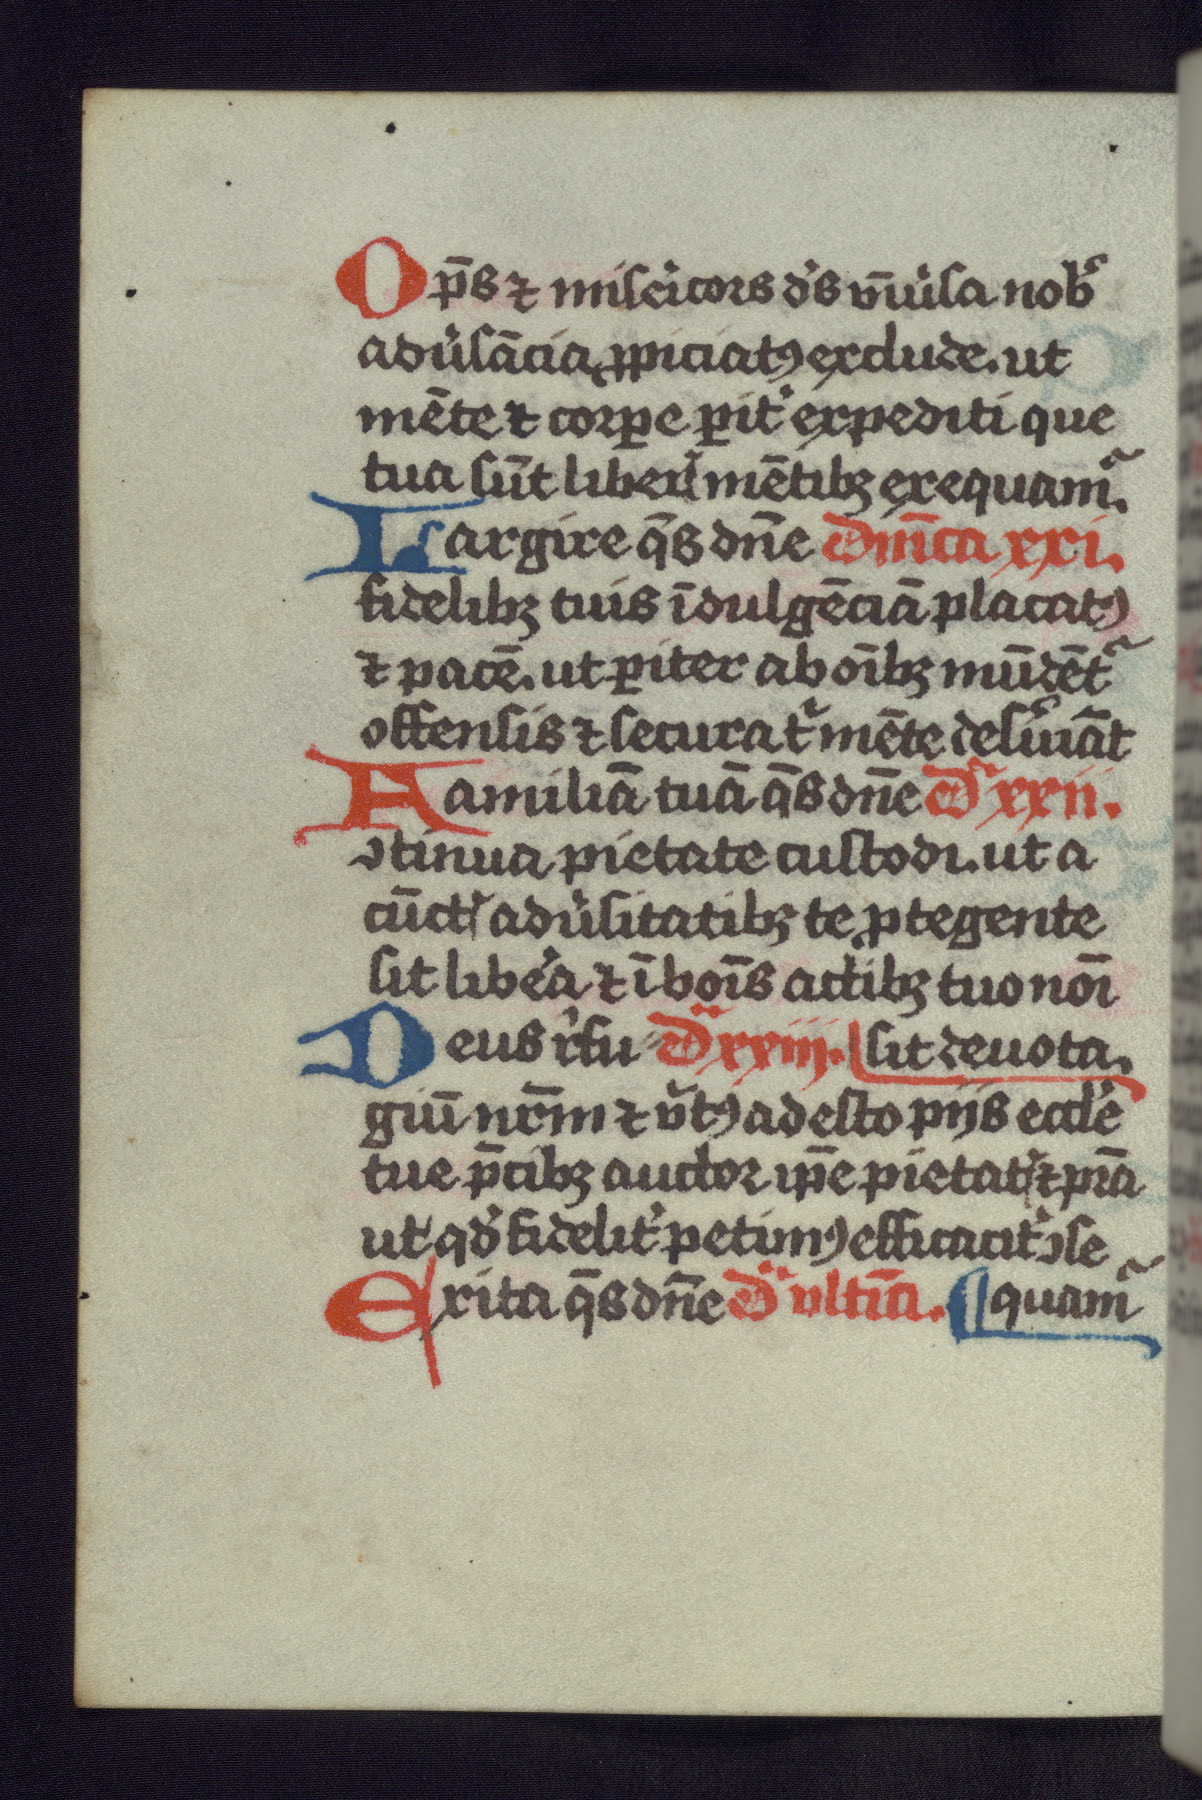 Op̄s ⁊ mis̄cicors d̓s vn̄iu̓sa nob̓
adu̓sācia p̱piciatꝰ exclude. ut
mēte ⁊ corꝑe ꝑit̓ expediti que
tua sūt liber̓ mētibꝫ exequam̓.
Largire q̄s dn̄e Dn̄ica xxi.
fidelibꝫ tuis īdulgēciā placatꝰ
⁊ pacē. ut ꝑiter ab oībꝫ mūdēt᷑
offensis ⁊ secura t᷑ mēte deẜuiāt
Familiā tuā q̄s dn̄e D᷑ xxii.
ↄtinua pietate custodi. ut a
cūct᷑ adu̓sitatibꝫ te ꝓtegente
sit libe᷑a ⁊ ī boīs actibꝫ tuo noī
Deus r̓fu D᷑ xxiii. sit deuota.
giū nr̄m ⁊ v̓tꝰ adesto pijs eccl̓e
tue p̄cibꝫ auctor ip̄e pietat᷑ ⁊ p̄ra
ut qd̓ fidelit̓ petimꝰ efficacit̓ ↄse
Exita q̄s dn̄e D᷑ vltīa. quam᷑